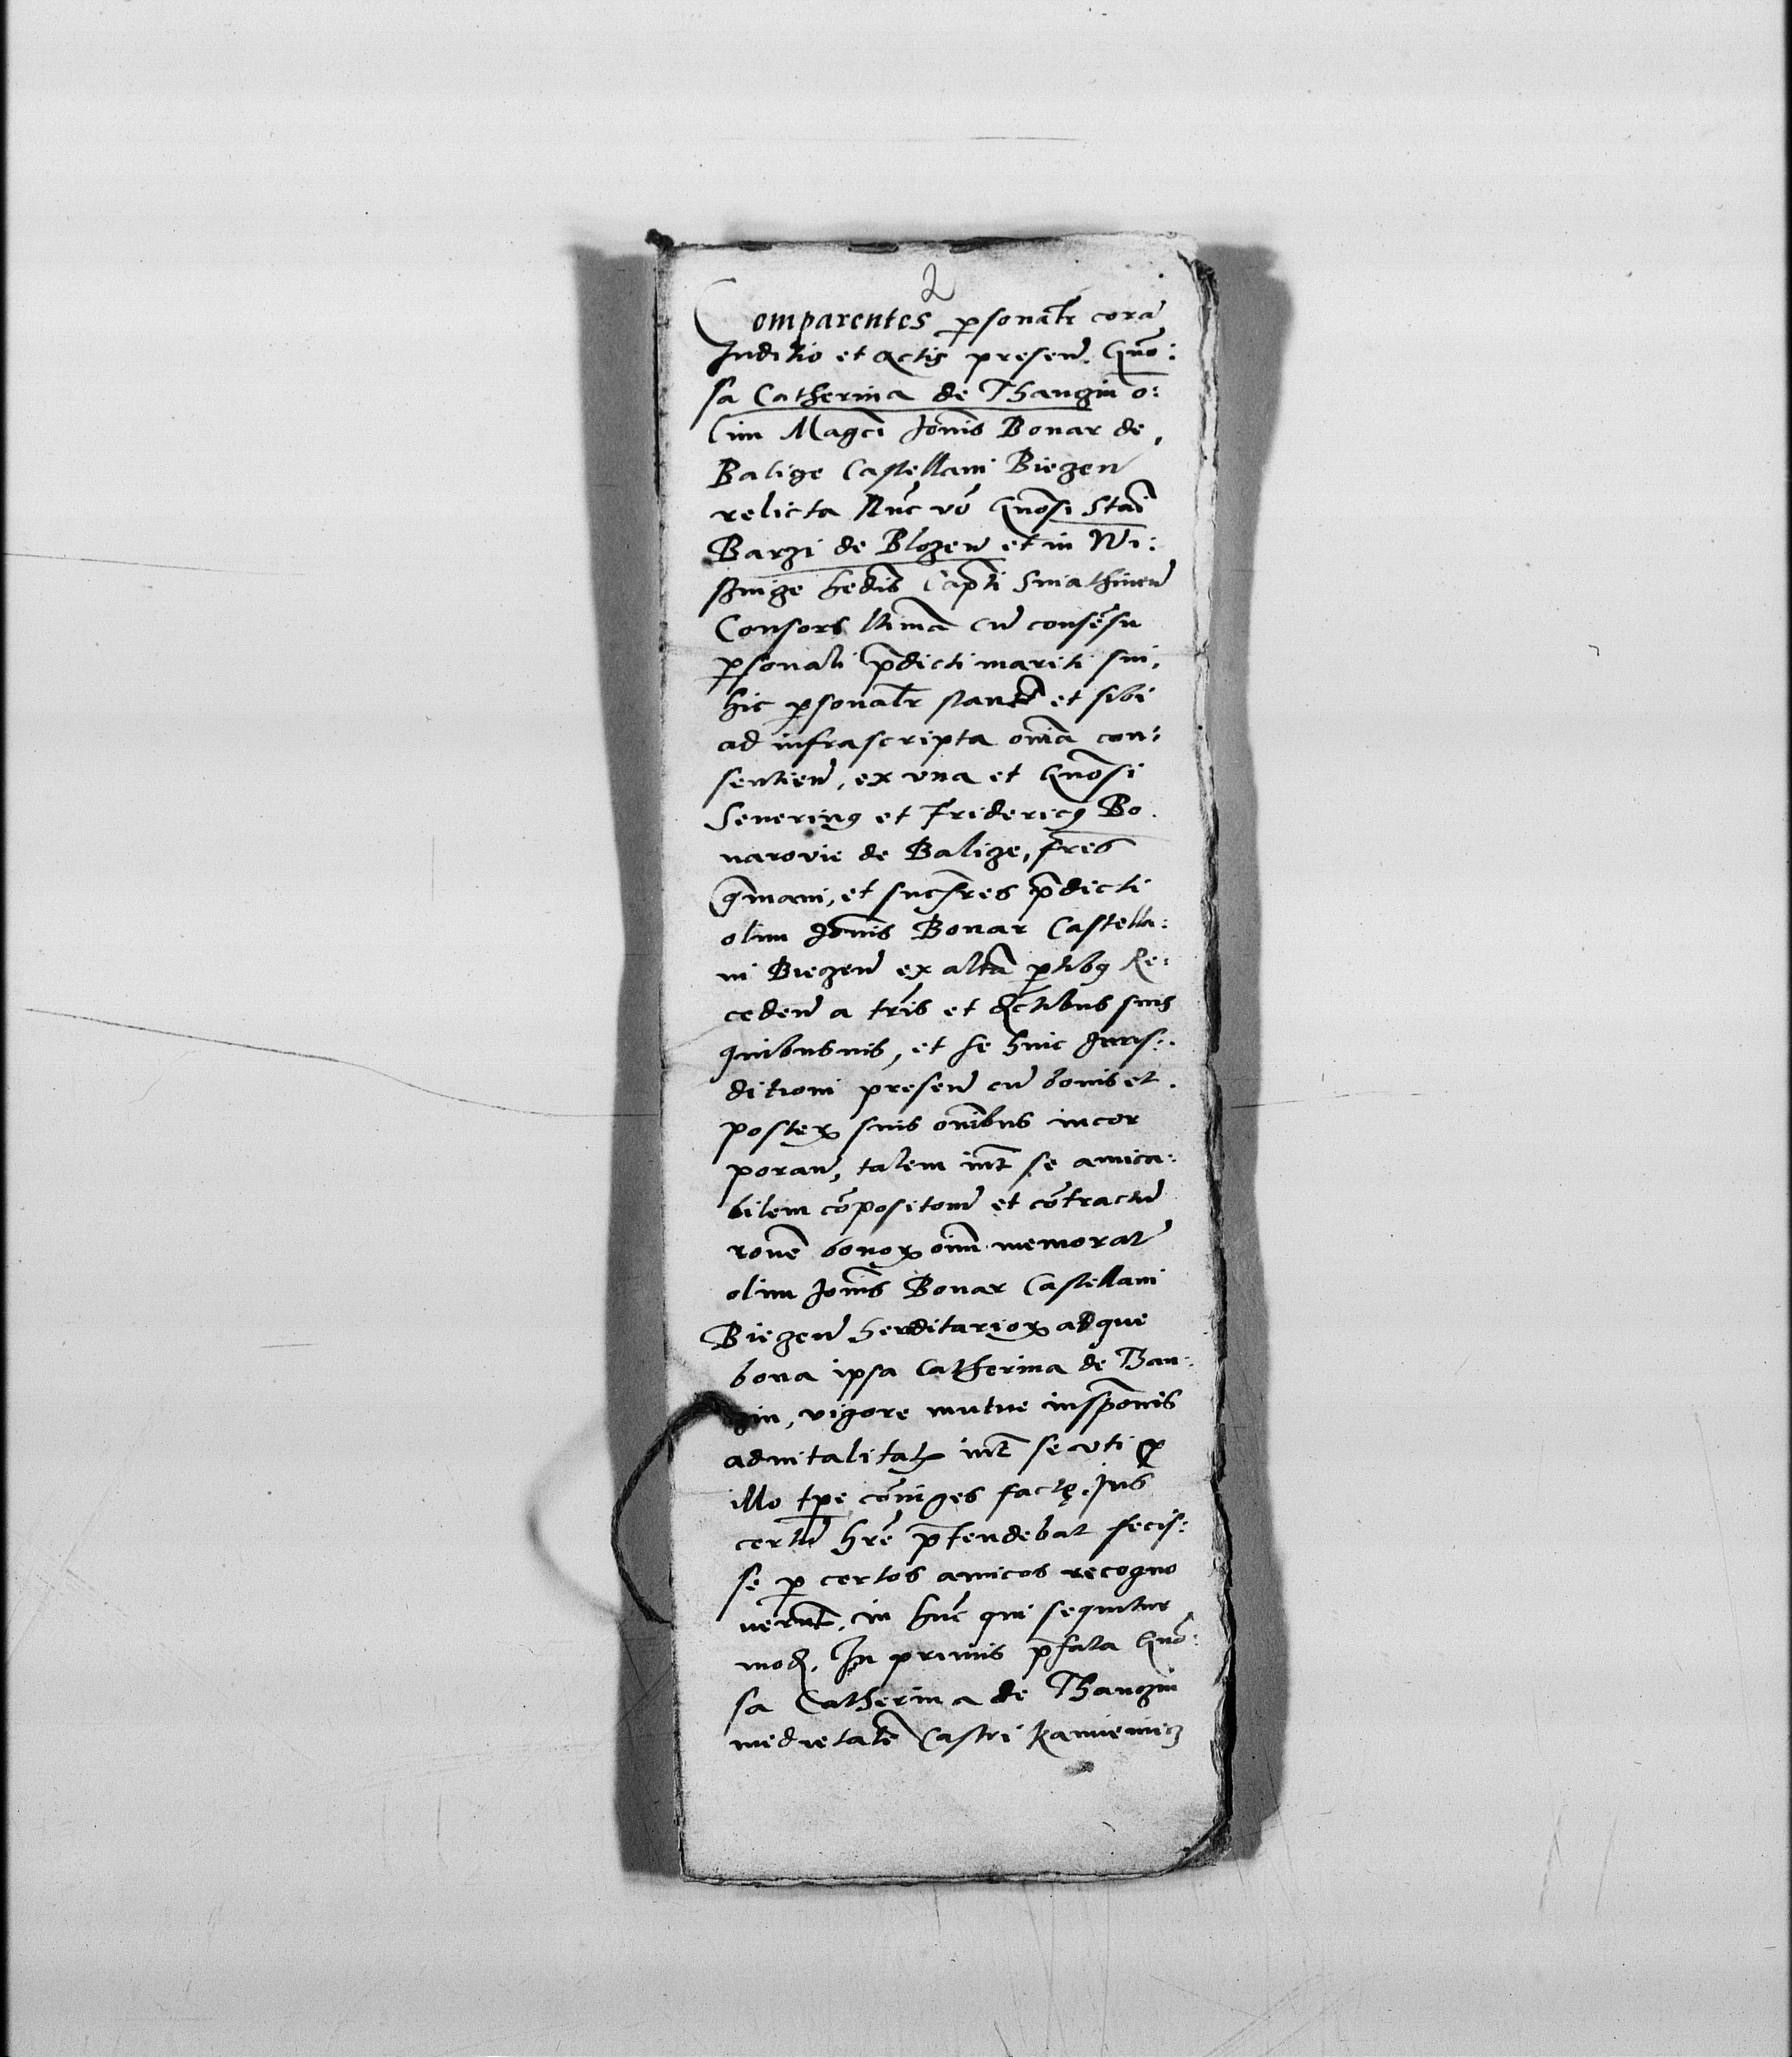 2
Comparentes p̱sonalr̃ corã
Juditio et actis preseñ. Gnõ:
sa Catherina de Thanczin o:
lim Magci Joñis Bonar de
Balicze Castellani Bieczeñ
relicta Nũc võ Gnõsi Stãi
Barzi de Blozeñ et in Wi:
sznicze hedis Capti Sniathineñ
Consors ltimã cũ consẽsu
p̱sonali p̃dicti mariti sui,
hic p̱sonalr̃ et sibi
ad infrascripta oñia con:
sentieñ, ex vna et Gnõsi
Severing et Fridericꝯ Bo
narovie de Balicze, fres̃
gmani, et sucs̃res p̃dicti
olim Joñis Bonar Castella:
ni Bieczeñ ex altã p̱tibꝯ Re:
cedeñ a tris̃ et dc̃tibus suis
quibusuis, et se huic Juris:
ditioni preseñ cũ bonis et
posteꝝ suis oñibus incor
poran̄, talem int̃ se amica:
bilem cõpositoñe et cõtractũ
roñe bonoꝝ oiñ memorat̃
olim Joñis Bonar Castellani
Bieczeñ hereditarioꝝ ad que
bona ipsa Catherina de Than:
czin, vigore mutue inspoñis
aduitalitat̃ int̃ se vti ꝓ
illo tp̃e cõiuges factę, Jus
certũ hrẽ p̃tendebat fecis:
se p̱ certos amicos recogno
uerunt̃, in hũc qui sequitur
mod̃. In primis p̃fata Gnõ:
sa Catherina de Thanczin
medietatẽ Castri Kamieniecz